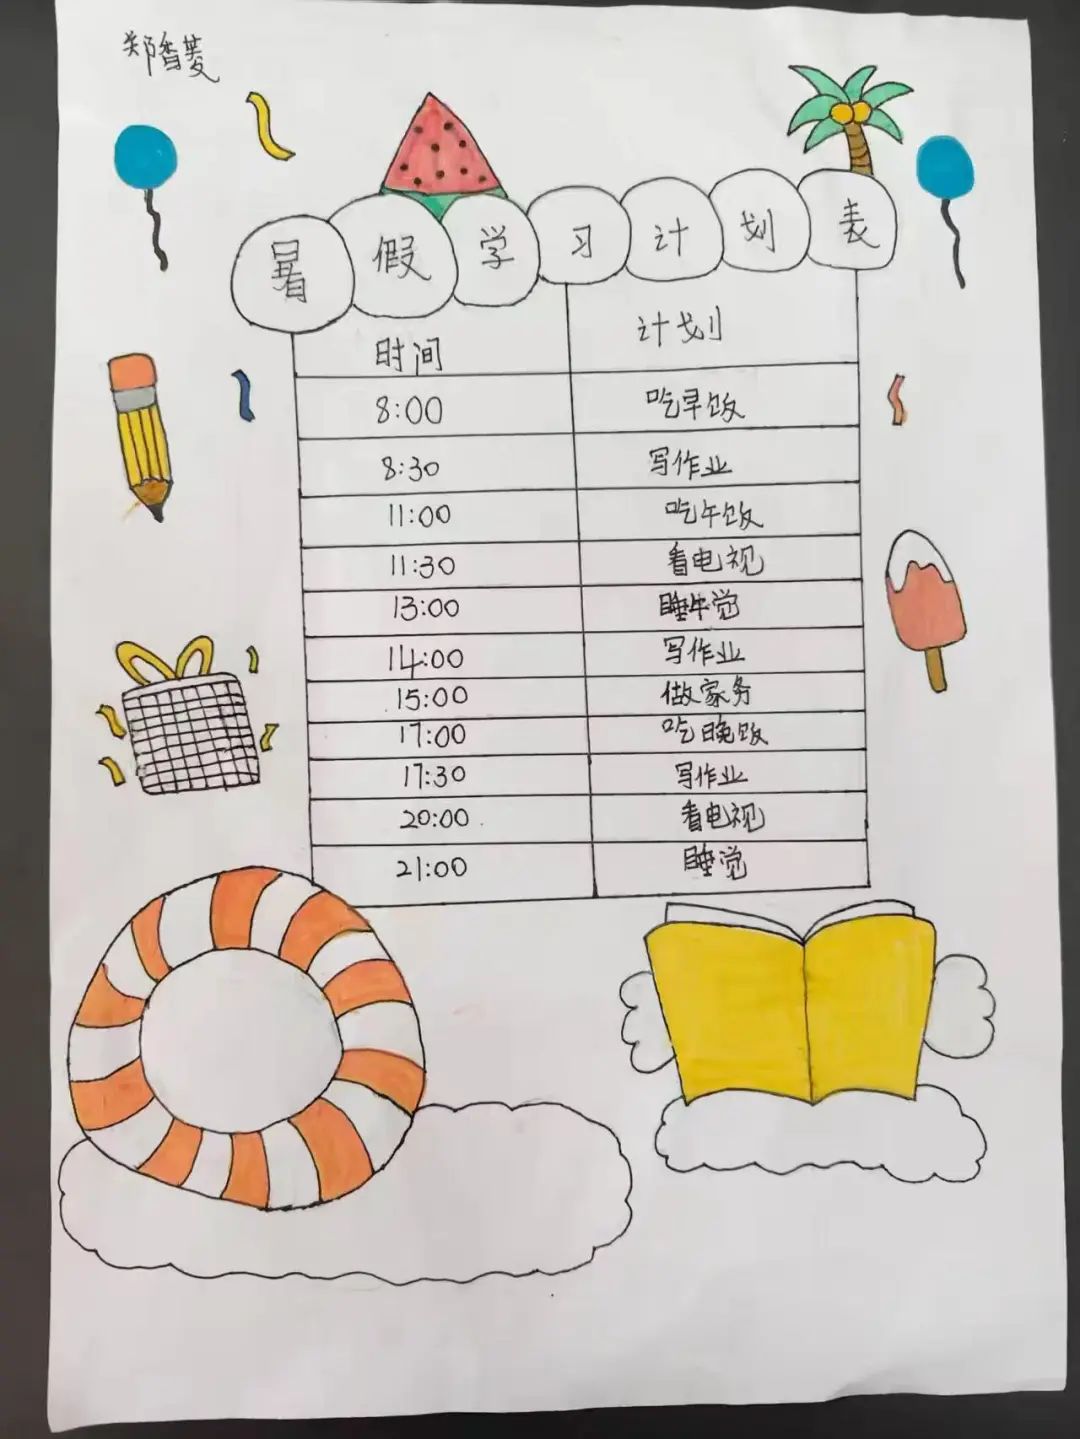 郑香菱
暑假学习计划表
时间 计划
8:00 吃早饭
8:30 写作业
11:00 吃午饭
11:30 看电视
13:00 睡午觉
14:00 写作业
15:00 做家务
17:00 吃晚饭
17:30 写作业
20:00 看电视
21:00 睡觉